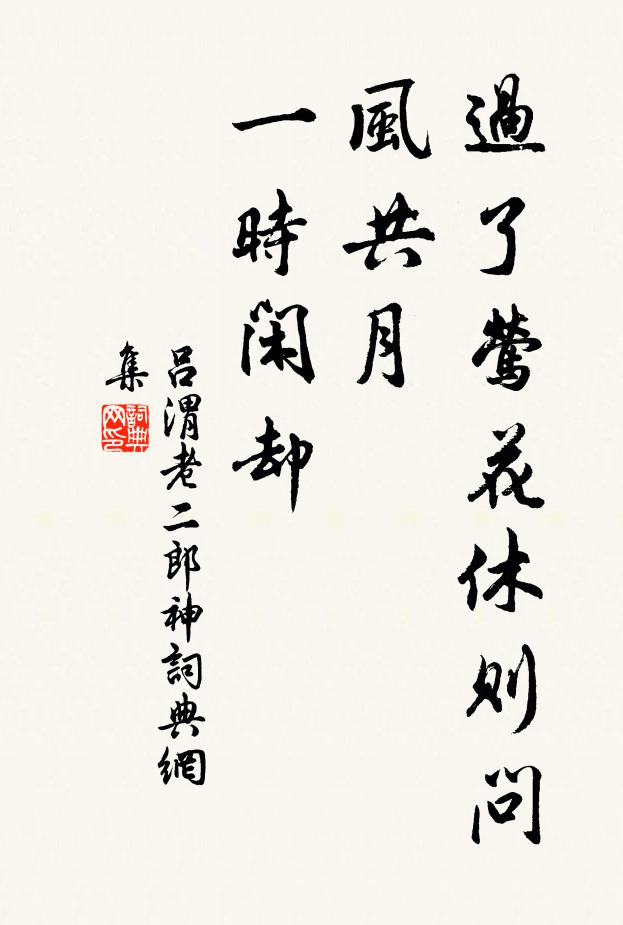 過了鶯花休則問
風共月
一時閑却
呂渭老二郎神詞典網
集
詞典
网印